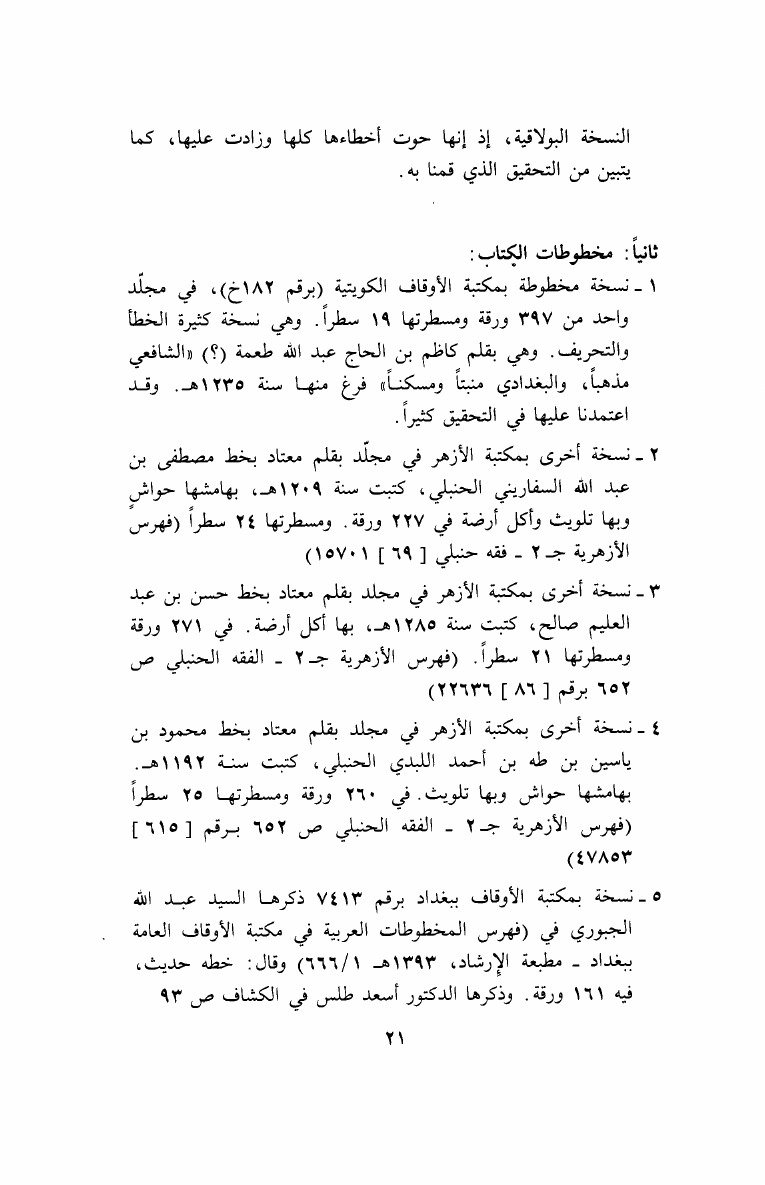 النسخة البولاقية، إذ إنها حوت أخطاءها كلها وزادت عليها، كما
يتبين من التحقيق الذي قمنا به.
ثانياً: مخطوطات الكتاب:
١ ـ نسخة مخطوطة بمكتبة الأوقاف الكويتية (برقم ١٨٢خ)، في مجلّد
واحد من ٣٩٧ ورقة ومسطرتها ١٩ سطراً. وهي نسخة كثيرة الخطأ
والتحريف. وهي بقلم كاظم بن الحاج عبد الله طعمة (؟) «الشافعي
مذهباً، والبغدادي منبتاً ومسكناً» فرغ منها سنة ١٢٣٥هـ. وقد
اعتمدنا عليها في التحقيق كثيراً.
٢ ـ نسخة أخرى بمكتبة الأزهر في مجلّد بقلم معتاد بخط مصطفى بن
عبد الله السفاريني الحنبلي، كتبت سنة ١٢٠٩هـ، بهامشها حواشٍ
وبها تلويث وأكل أرضة في ٢٢٧ ورقة. ومسطرتها ٢٤ سطراً (فهرس
الأزهرية جـ٢ - فقه حنبلي [ ٦٩ ] ١٥٧٠١)
٣ ـ نسخة أخرى بمكتبة الأزهر في مجلد بقلم معتاد بخط حسن بن عبد
العليم صالح، كتبت سنة ١٢٨٥هـ، بها أكل أرضة. في ٢٧١ ورقة
ومسطرتها ٢١ سطراً. (فهرس الأزهرية جـ٢ - الفقه الحنبلي ص
٦٥٢ برقم [ ٨٦ ] ٢٢٦٣٦)
٤ ـ نسخة أخرى بمكتبة الأزهر في مجلد بقلم معتاد بخط محمود بن
ياسين بن طه بن أحمد اللبدي الحنبلي، كتبت سنة ١١٩٢هـ.
بهامشها حواش وبها تلويث. في ٢٦٠ ورقة ومسطرتها ٢٥ سطراً
(فهرس الأزهرية جـ٢ - الفقه الحنبلي ص ٦٥٢ برقم [ ٦١٥ ]
٤٧٨٥٣)
٥ ـ نسخة بمكتبة الأوقاف ببغداد برقم ٧٤١٣ ذكرها السيد عبد الله
الجبوري في (فهرس المخطوطات العربية في مكتبة الأوقاف العامة
ببغداد - مطبعة الإرشاد، ١٣٩٣هـ ٦٦٦/١) وقال: خطه حديث،
فيه ١٦١ ورقة. وذكرها الدكتور أسعد طلس في الكشاف ص ٩٣
٢١